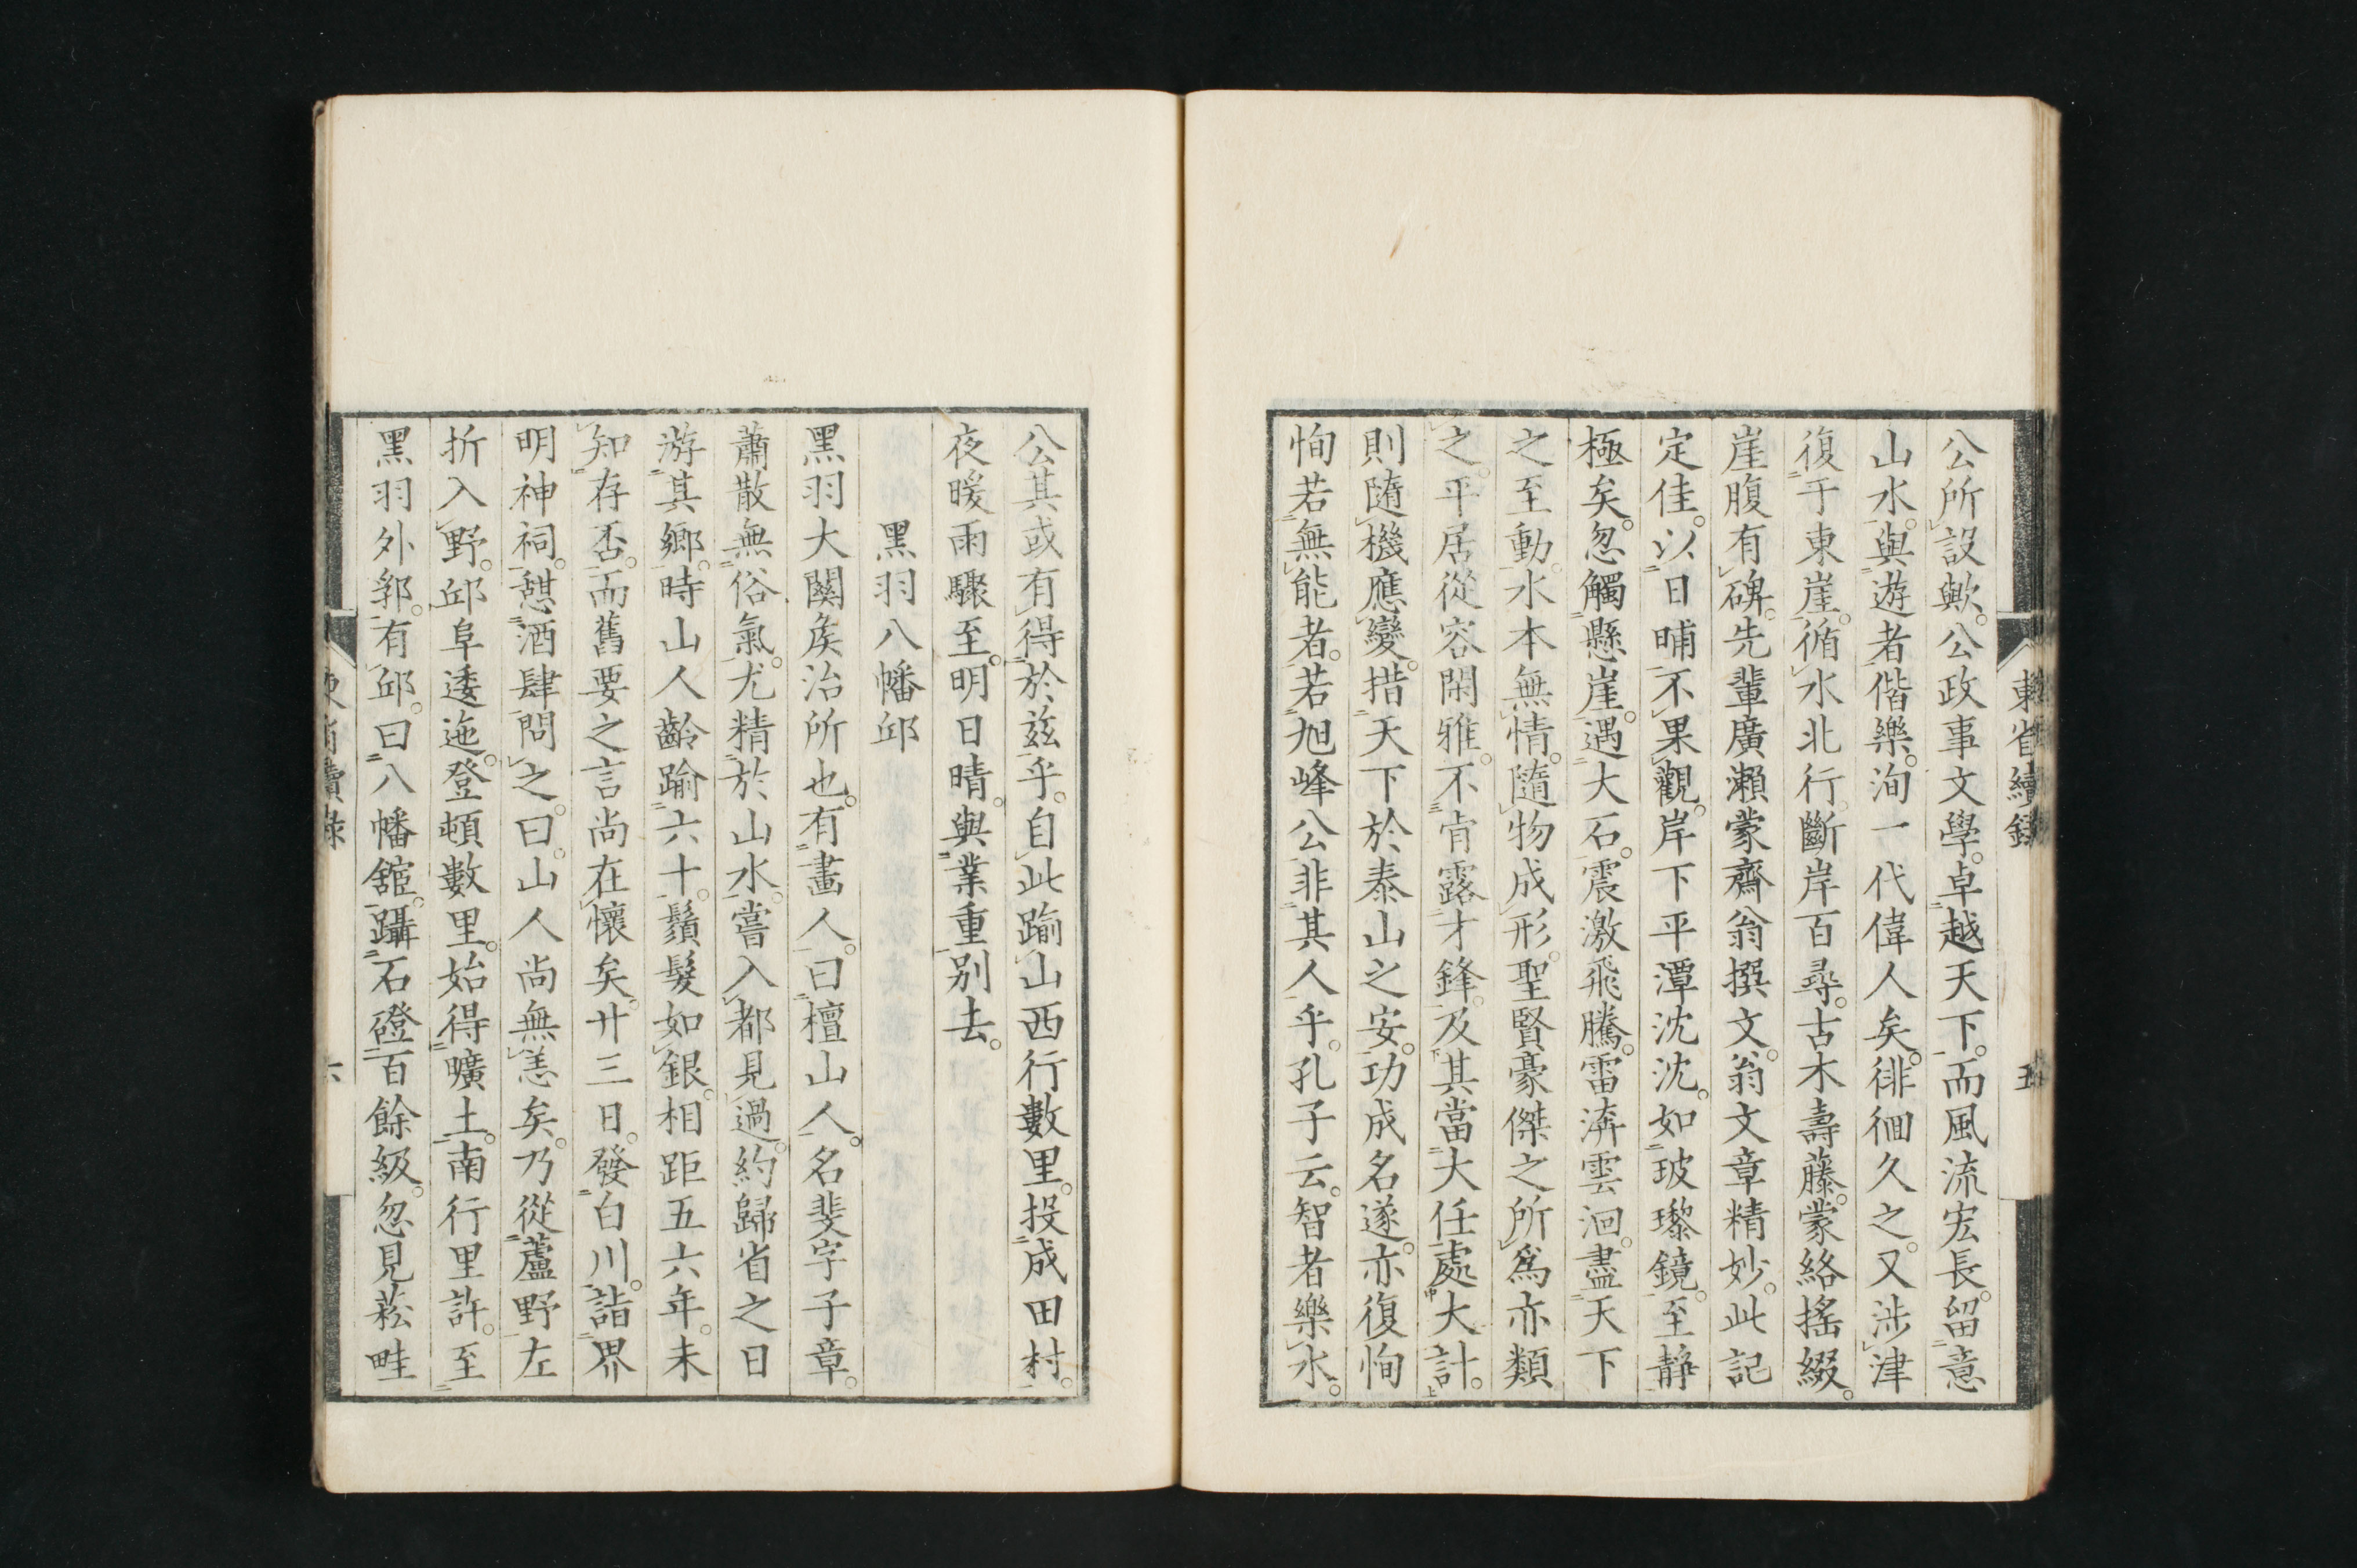 東省續錄
五
公所設歟。公政事文學。卓越天下。而風流宏長。留意
山水。與遊者偕樂。洵一代偉人矣。徘徊久之。又涉津
復于東崖。循水北行。斷岸百尋。古木壽藤。蒙絡搖綴。
崖腹有碑。先輩廣瀨蒙齋翁撰文。翁文章精妙。此記
定佳。以日晡不果觀。岸下平潭沈沈。如玻瓈鏡。至靜
極矣。忽觸懸崖。遇大石。震激飛騰。雷渀雲洄。盡天下
之至動。水本無情。隨物成形。聖賢豪傑之所爲亦類
之。平居從容閑雅。不肯露才鋒。及其當大任處大計。
則隨機應變。措天下於泰山之安。功成名遂。亦復恂
恂若無能者。若旭峰公非其人乎。孔子云。智者樂水。
公其或有得於兹乎。自此踰山西行數里。投成田村。
夜暖雨驟至。明日晴。與業重別去。
黑羽八幡邱
黑羽大關矦治所也。有畫人。曰檀山人。名斐字子章。
蕭散無俗氣。尤精於山水。嘗入都見過。約歸省之日
游其鄉。時山人齡踰六十。鬚髮如銀。相距五六年。未
知存否。而舊要之言尚在懷矣。廿三日。發白川。詣界
明神祠。憩酒肆問之。曰。山人尚無恙矣。乃從蘆野左
折入野。邱阜逶迤。登頓數里。始得曠土。南行里許。至
黑羽外郭。有邱。曰八幡舘。躡石磴百餘級。忽見菘畦
六